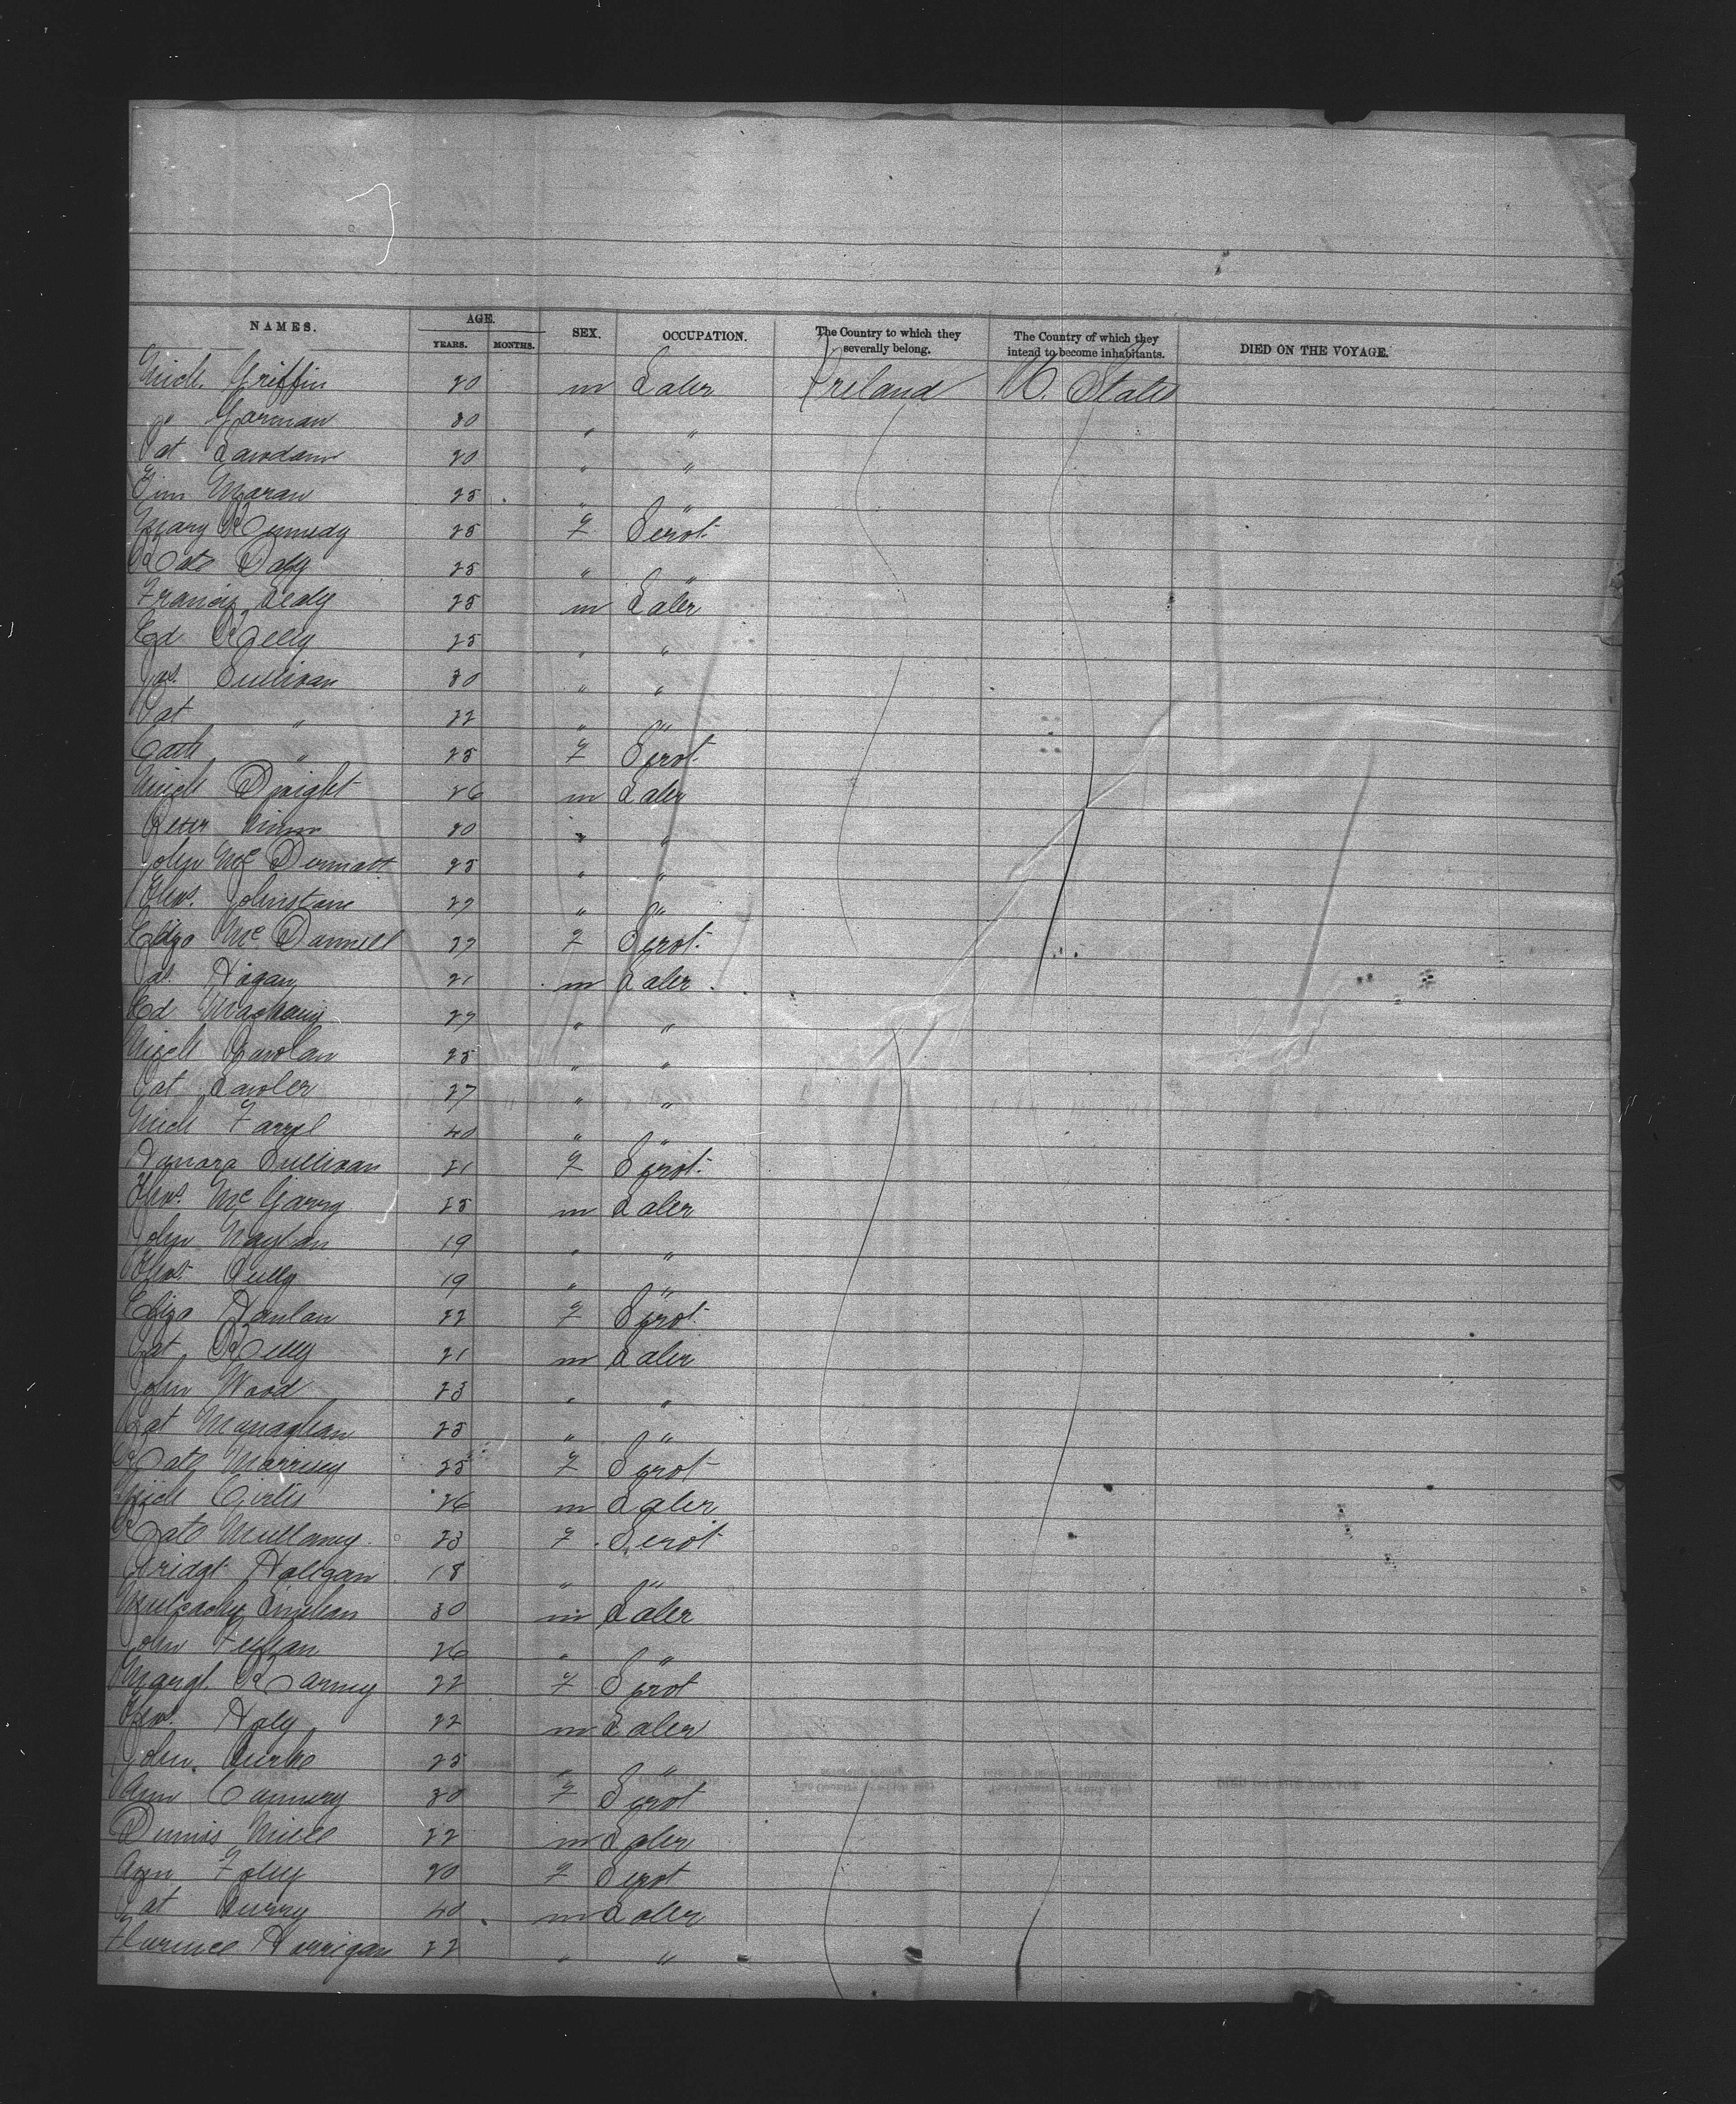 7
NAMES. AGE. YEARS. MONTHS. SEX. OCCUPATION. The Country to which they severally belong. The Country of which they intend to become inhabitants. DIED ON THE VOYAGE.
Mich. Griffin 20 m Laber Ireland U. States
" Gorman 30 " "
Pat 20 " "
Tim Moran 25 " "
Mary Kennedy 25 f Servt.
Kate Daly 25 " "
Francis Leddy 25 m Laber
Ed Kelly 25 " "
Jas. Sullivan 30 " "
Pat " 22 " "
Cath " 25 f Servt.
Mich Dwight 26 m Laber
Peter 20 " "
John McDermott 25 " "
Thos. Johnstone 27 " "
Eliza McDonnell 27 f Servt.
Jas. Hogan 21 m Laber
Ed 27 " "
Mich 25 " "
Pat Lawler 27 " "
Mich Farrel 40 " "
Honora Sullivan 21 f Servt.
Thos. McGarry 25 m Laber
John Naylan 19 " "
Thos. 19 " "
Eliza Hanlan 22 f Servt.
Pat Kelly 21 m Laber
John Wood 23 " "
Pat Monaghan 25 " "
Kate Morrisey 25 f Servt
Mich 26 m Laber
Kate Mullaney 23 f Servt
Bridgt Holigan 18 " "
Linehan 30 m Laber
John 26 " "
Margt Kearney 22 f Servt
Thos. Holy 22 m Laber
John Burke 25 " "
Ann 30 f Servt
Dennis Niell 22 m Laber
Ann Foley 20 f Servt
Pat Curry 40 m Laber
Florence Horrigan 22 " "